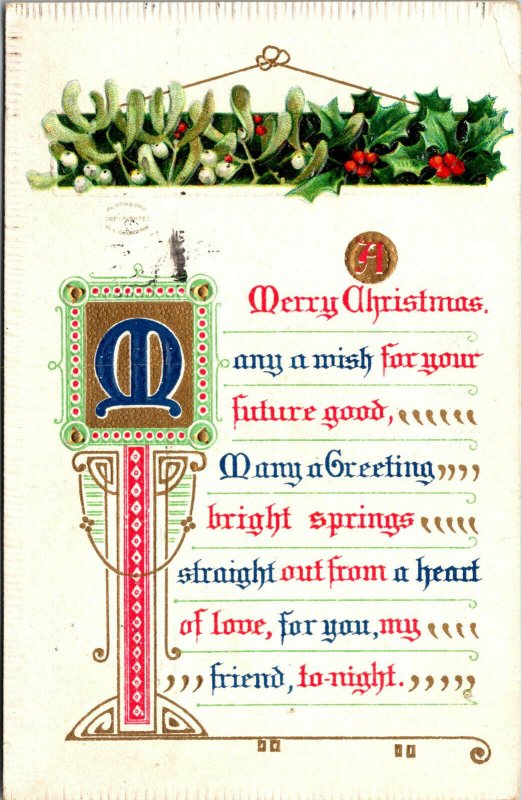 COPYRIGHTED
A
Merry Christmas.
Many a wish for your
future good,
Many a Greeting
bright springs
straight out from a heart
of love, for you, my
friend, to-night.